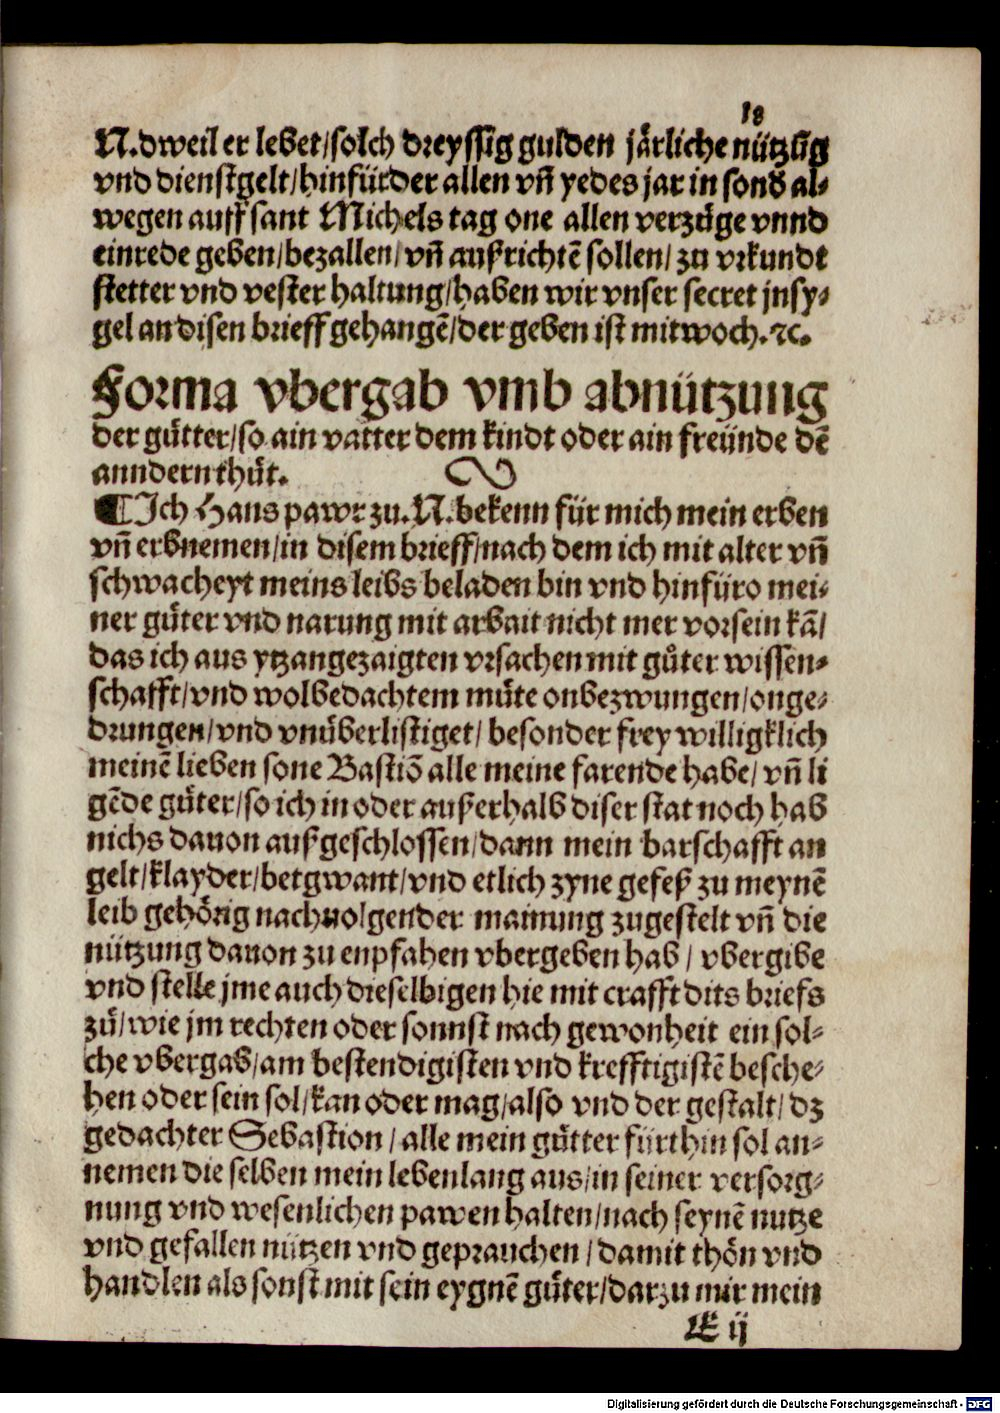 18
N.dweil er lebet/solch dreyssig gulden järliche nützūg
vnd dienstgelt/hinfürder allen vñ yedes jar in sond al-
wegen auff sant Michels tag one allen verzůge vnnd
einrede geben/bezallen/vñ außrichtē sollen/zu vrkundt
stetter vnd vester haltung/haben wir vnser secret jnsy-
gel an disen brieff gehangē/der geben ist mitwoch.⁊c.
Forma vbergab vmb abnützung
der gůtter/so ain vatter dem kindt oder ain freünde dē
anndern thůt.
¶Ich Hans pawr zu.N.bekenn für mich mein erben
vñ erbnemen/in disem brieff/nach dem ich mit alter vñ
schwacheyt meins leibs beladen bin vnd hinfüro mei-
ner gůter vnd narung mit arbait nicht mer vorsein kā/
das ich aus ytzangezaigten vrsachen mit gůter wissen-
schafft/vnd wolbedachtem můte onbezwungen/onge-
drungen/vnd vnüberlistiget/besonder frey willigklich
meinē lieben sone Bastiō alle meine farende habe/vñ li
gēde gůter/so ich in oder außerhalb diser stat noch hab
nichs dauon außgeschlossen/dann mein barschafft an
gelt/klayder/betgwant/vnd etlich zyne gefeß zu meynē
leib gehörig nachuolgender mainung zugestelt vñ die
nützung dauon zu enpfahen vbergeben hab/vbergibe
vnd stelle jme auch dieselbigen hie mit crafft dits briefs
zů/wie jm rechten oder sonnst nach gewonheit ein sol-
che vbergab/am bestendigisten vnd krefftigistē besche-
hen oder sein sol/kan oder mag/also vnd der gestalt/dz
gedachter Sebastion/alle mein gůtter fürthin sol an-
nemen die selben mein lebenlang aus/in seiner versorg-
nung vnd wesenlichen pawen halten/nach seynē nutze
vnd gefallen nützen vnd geprauchen/damit thön vnd
handlen als sonst mit sein eygnē gůter/darzu mir mein
E ij
Digitalisierung gefördert durch die Deutsche Forschungsgemeinschaft - DFG